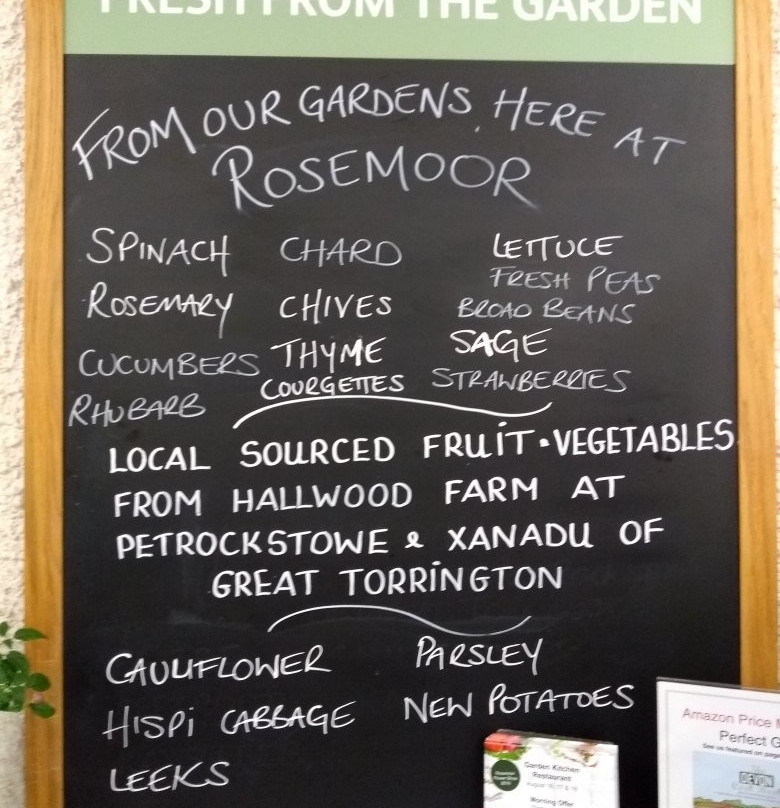 FRESH FROM THE GARDEN
FROM OUR GARDENS, HERE AT
ROSEMOOR
SPINACH CHARD LETTUCE
FRESH PEAS
ROSEMARY CHIVES BROAD BEANS
CUCUMBERS THYME SAGE
RHUBARB COURGETTES STRAWBERRIES
LOCAL SOURCED FRUIT • VEGETABLES
FROM HALLWOOD FARM AT
PETROCKSTOWE & XANADU OF
GREAT TORRINGTON
CAULIFLOWER PARSLEY
HISPI CABBAGE NEW POTATOES
LEEKS
Garden Kitchen
Restaurant
Morning Offer
Amazon Price
Perfect G
See us featured on page
DEVON